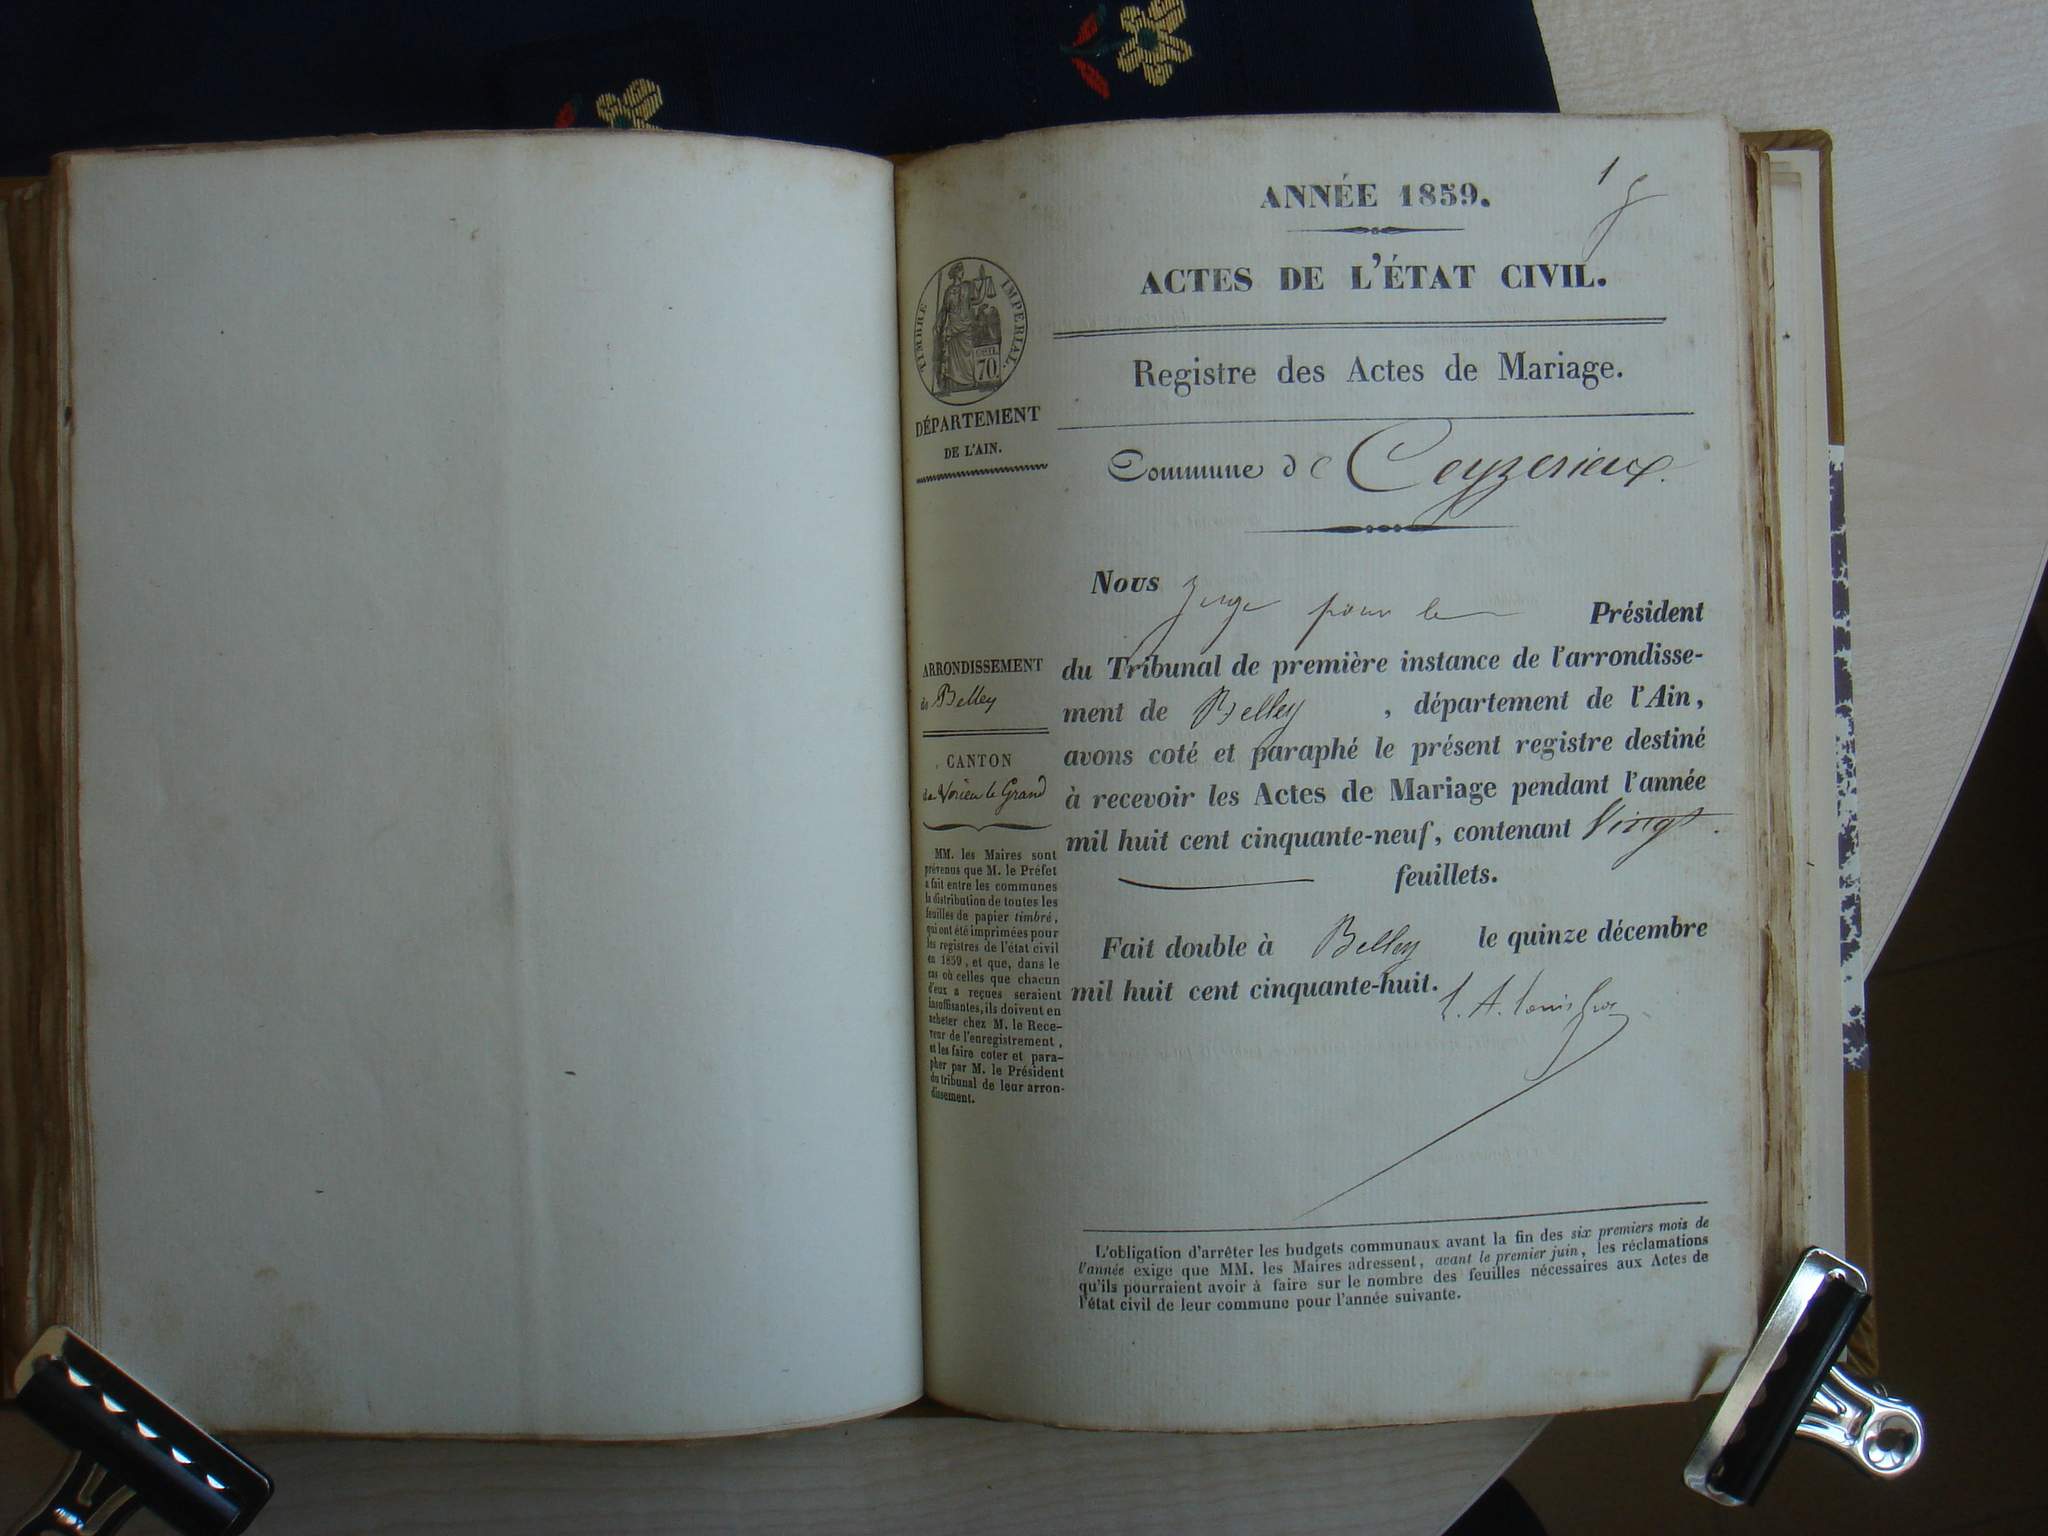 1
ANNÉE 1859.
ACTES DE L'ÉTAT CIVIL.
TIMBRE IMPERIAL.
CENT. 70
DÉPARTEMENT
DE L'AIN.
Registre des Actes de Mariage.
Commune de Ceyzerieux.
ARRONDISSEMENT
de Belley
CANTON
de Virieu le Grand
MM. les Maires sont
prévenus que M. le Préfet
a fait entre les communes
la distribution de toutes les
feuilles de papier timbré,
qui ont été imprimées pour
les registres de l'état civil
en 1859, et que, dans le
cas où celles que chacun
d'eux a reçues seraient
insuffisantes, ils doivent en
acheter chez M. le Rece-
veur de l'enregistrement,
et les faire coter et para-
pher par M. le Président
du tribunal de leur arron-
dissement.
Nous Juge pour le Président
du Tribunal de première instance de l'arrondisse-
ment de Belley, département de l'Ain,
avons coté et paraphé le présent registre destiné
à recevoir les Actes de Mariage pendant l'année
mil huit cent cinquante-neuf, contenant Vingt
feuillets.
Fait double à Belley le quinze décembre
mil huit cent cinquante-huit.
L'obligation d'arrêter les budgets communaux avant la fin des six premiers mois de
l'année exige que MM. les Maires adressent, avant le premier juin, les réclamations
qu'ils pourraient avoir à faire sur le nombre des feuilles nécessaires aux Actes de
l'état civil de leur commune pour l'année suivante.